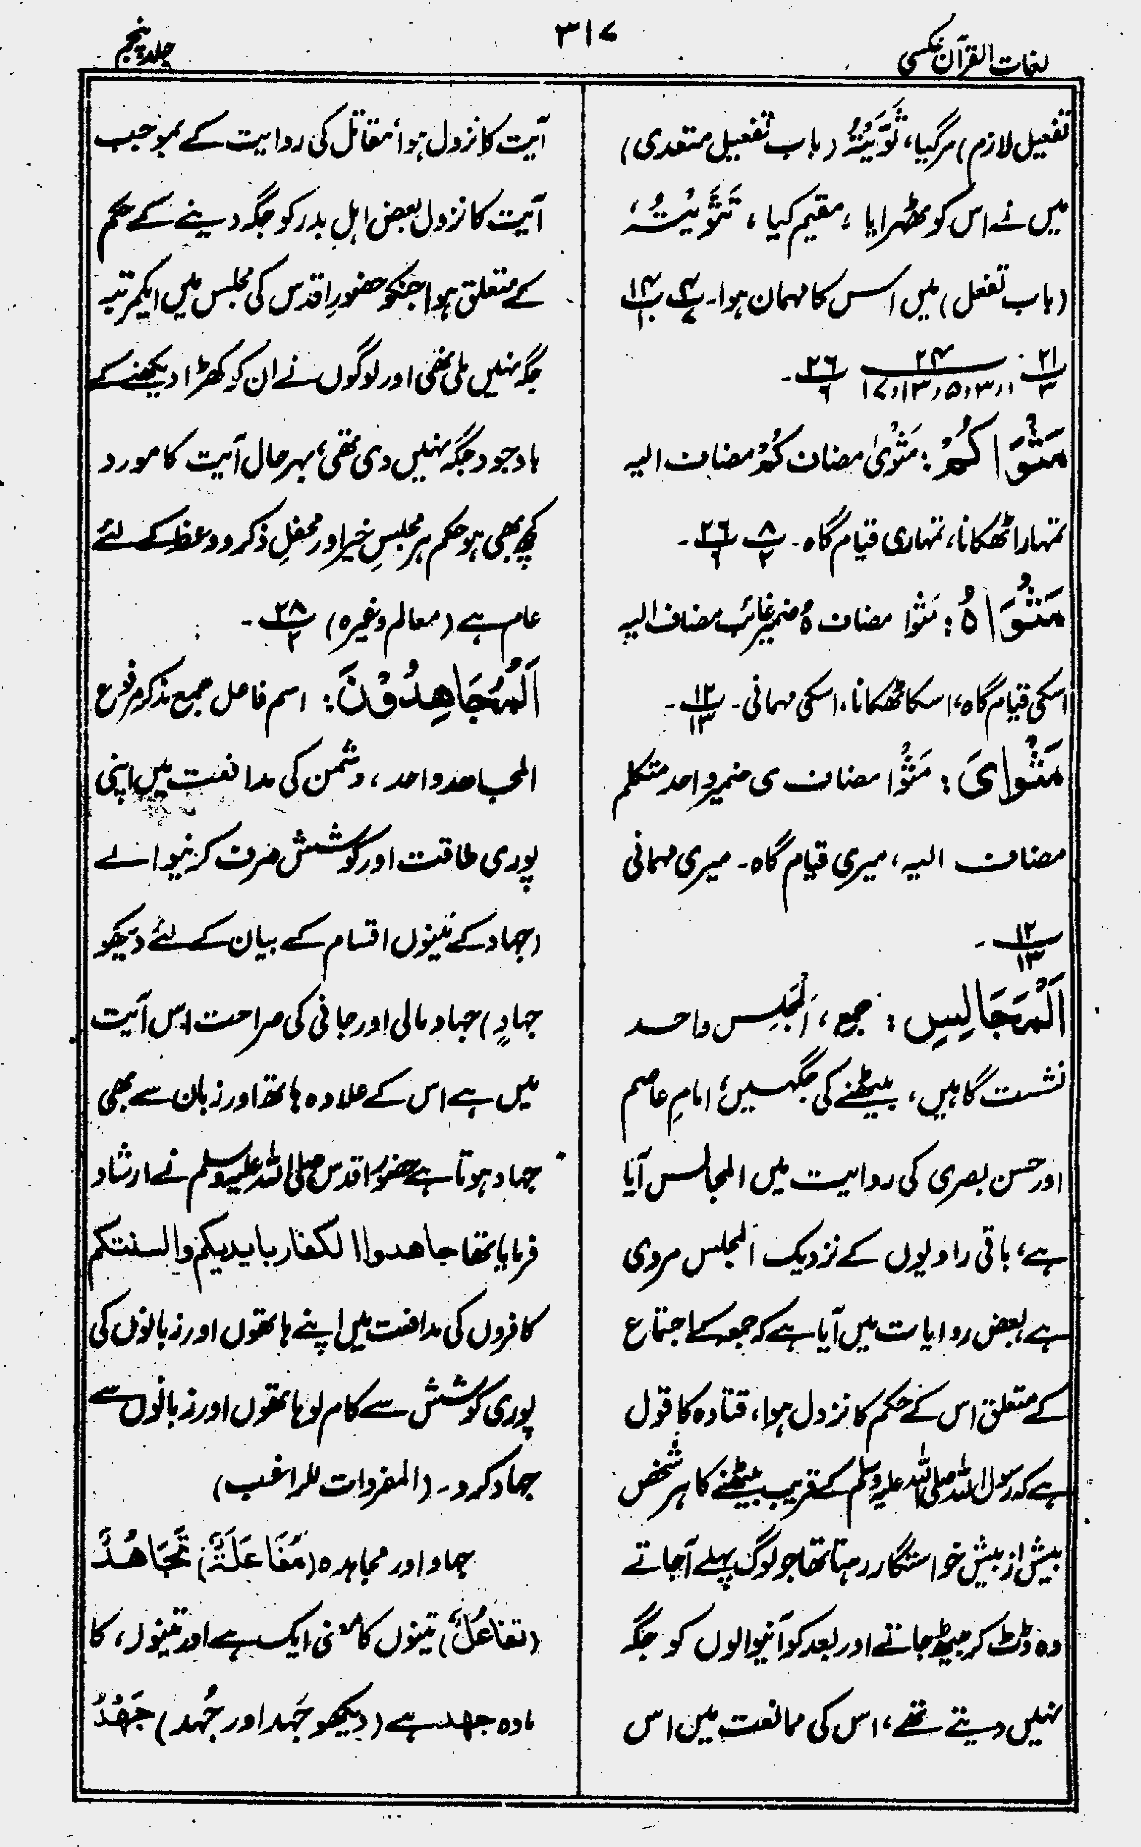 لغات القرآن عکسی
۳۱۷
جلد پنجم
تفعیل لازم) مرگیا، ثَوَّیْتُہٗ (باب تفعیل متعدی)
میں نے اس کو ٹھہرایا، مقیم کیا، تَثَوَّیْتُہٗ،
(باب تفعل) میں اس کا مہمان ہوا۔ ۴/۷ ۱۴/۱۰
۲۱/۳ ۲۴/۱،۳،۵،۱۳،۱۷ ۲۶/۶ ۔
مَثْوَاکُمْ: مَثْویٰ مضاف کُمْ مضاف الیہ
تمہارا ٹھکانا، تمہاری قیام گاہ۔ ۸/۲ ۲۶/۶ ۔
مَثْوَاہُ: مَثْوا مضاف ہُ ضمیر غائب مضاف الیہ
اسکی قیام گاہ، اسکا ٹھکانا، اسکی مہمانی۔ ۱۲/۱۳ ۔
مَثْوَایَ: مَثْوا مضاف ی ضمیر واحد متکلم
مضاف الیہ، میری قیام گاہ۔ میری مہمانی
۱۲/۱۳ ۔
اَلْمَجَالِسِ: جمع، اَلْمَجْلِسِ واحد
نشست گاہیں، بیٹھنے کی جگہیں، امامِ عاصم
اور حسن بصری کی روایت میں المجالس آیا
ہے، باقی راویوں کے نزدیک المجلس مروی
ہے، بعض روایات میں آیا ہے کہ جمعہ کے اجتماع
کے متعلق اس کے حکم کا نزول ہوا، قتادہ کا قول
ہے کہ رسول اللہ صلی اللہ علیہ وسلم کے قریب بیٹھنے کا ہر شخص
بیش از بیش خواستگار رہتا تھا جو لوگ پہلے آجاتے
وہ ڈٹ کر بیٹھ جاتے اور بعد کو آنیوالوں کو جگہ
نہیں دیتے تھے، اس کی ممانعت میں اس
آیت کا نزول ہوا، مقاتل کی روایت کے بموجب
آیت کا نزول بعض اہل بدر کو جگہ دینے کے حکم
کے متعلق ہوا جنکو حضور اقدس کی مجلس میں ایکمرتبہ
جگہ نہیں ملی تھی اور لوگوں نے ان کو کھڑا دیکھنے کے
باوجود جگہ نہیں دی تھی، بہر حال آیت کا مورد
کچھ بھی ہو حکم ہر مجلسِ خیر اور محفلِ ذکر و وعظ کے لئے
عام ہے (معالم وغیرہ) ۲۸/۲ ۔
اَلْمُجَاھِدُوْنَ: اسم فاعل جمع مذکر مرفوع
المجاھد واحد، دشمن کی مدافعت میں اپنی
پوری طاقت اور کوشش صرف کرنیوالے
(جہاد کے تینوں اقسام کے بیان کے لئے دیکھو
جہادٍ) جہاد مالی اور جانی کی صراحت اس آیت
میں ہے اس کے علاوہ ہاتھ اور زبان سے بھی
جہاد ہوتا ہے حضور اقدس صلی اللہ علیہ وسلم نے ارشاد
فرمایا تھا جاھدوا الکفار بایدیکم والسنتکم
کافروں کی مدافعت میں اپنے ہاتھوں اور زبانوں کی
پوری کوشش سے کام لو ہاتھوں اور زبانوں سے
جہاد کرو۔ (المفردات للراغب)
جہاد اور مجاہدہ (مُفَاعَلَۃٌ) تَجَاھُدٌ
(تفاعُلٌ) تینوں کا معنی ایک ہے اور تینوں کا
مادہ جھد ہے (دیکھو جَہد اور جُہد) جَھْدٌ